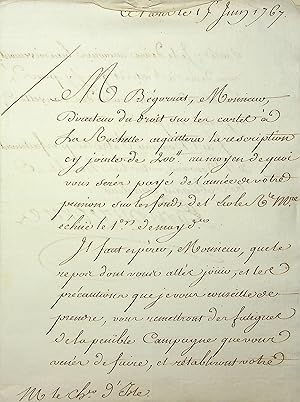 à Paris le 15 Juin 1767.
M. Bégouat, Monsieur,
Directeur du Droit sur les cartes à
La Rochelle acquittera la rescription
cy jointe de 200ᴴ. au moyen de quoi
vous serés payé de l'année de votre
pension sur les fonds de l'Ecole Rˡᵉ Mʳᵉ
échue le 1ᵉʳ de may dᵉʳ
Il faut espérer, Monsieur, que le
repos dont vous allés jouir, et les
précautions que je vous conseille de
prendre, vous remettront des fatigues
de la penible Campagne que vous
venés de faire, et rétabliront votre
M. le Chᵉʳ d'Isle